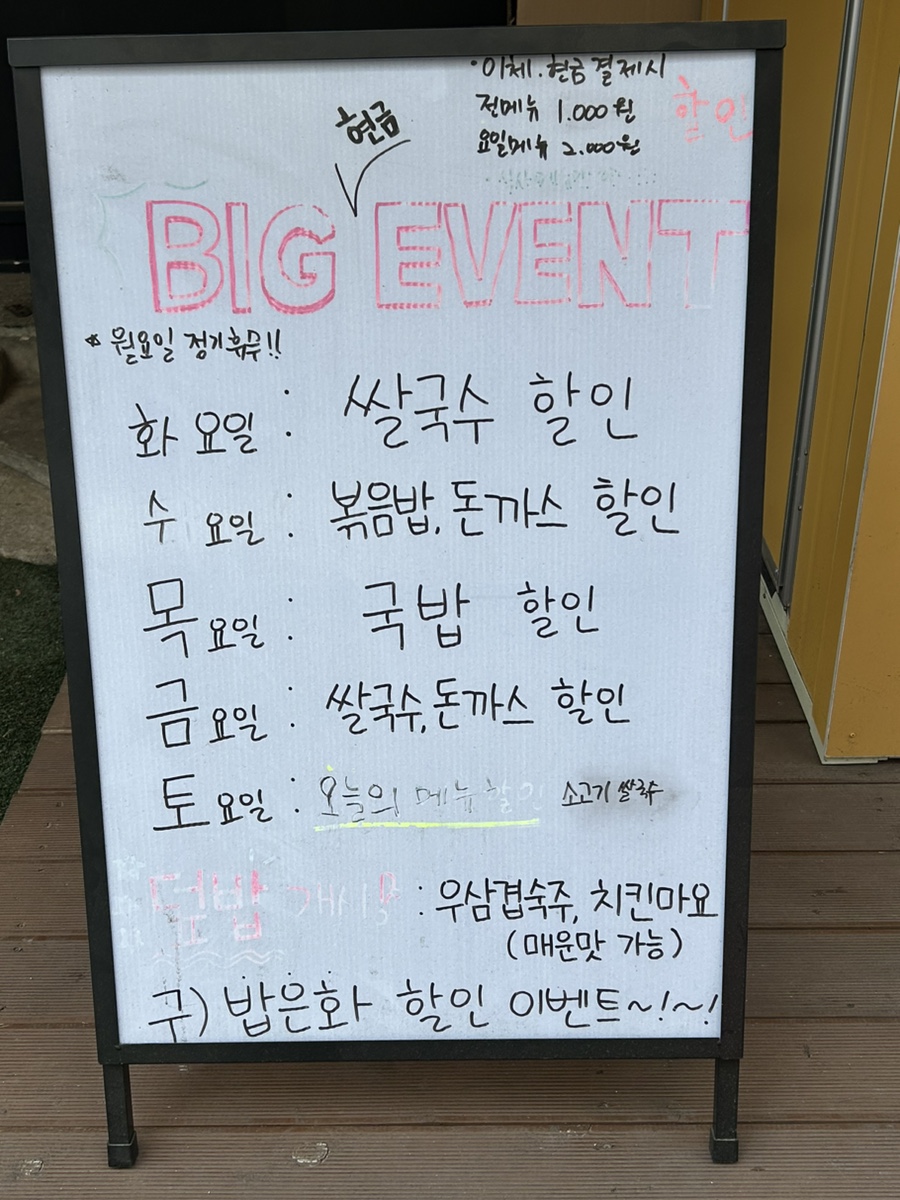 · 이체. 현금 결제시
전메뉴 1.000원 할인
요일메뉴 2.000원
현금
BIG EVENT
* 월요일 정기휴무!!
화요일 : 쌀국수 할인
수요일 : 볶음밥, 돈까스 할인
목요일 : 국밥 할인
금요일 : 쌀국수, 돈까스 할인
토요일 : 오늘의 메뉴 할인 소고기 쌀국수
덮밥 개시! : 우삼겹숙주, 치킨마요
(매운맛 가능)
구) 밥은화 할인 이벤트~!~!